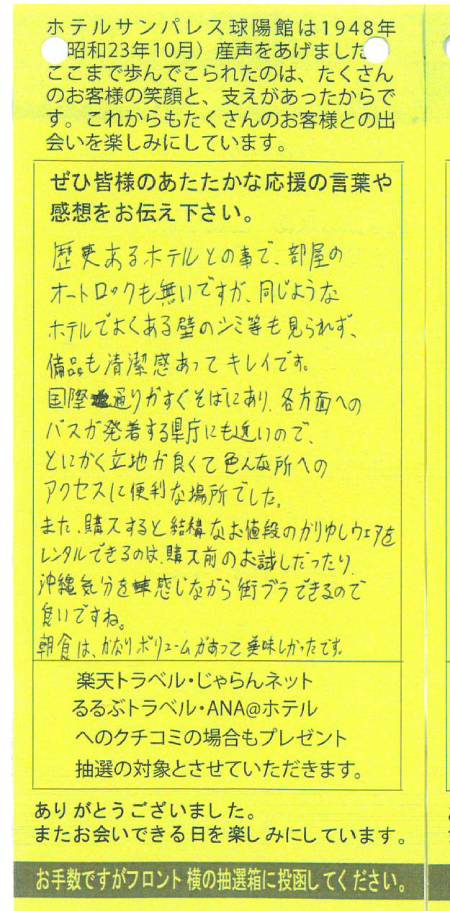 ホテルサンパレス球陽館は1948年
昭和23年10月）産声をあげました
ここまで歩んでこられたのは、たくさん
のお客様の笑顔と、支えがあったからで
す。これからもたくさんのお客様との出
会いを楽しみにしています。
ぜひ皆様のあたたかな応援の言葉や
感想をお伝え下さい。
歴史あるホテルとの事で、部屋の
オートロックも無いですが、同じような
ホテルでよくある壁のシミ等も見られず、
備品も清潔感あってキレイです。
国際通りがすぐそばにあり、各方面への
バスが発着する県庁にも近いので、
とにかく立地が良くて色んな所への
アクセスに便利な場所でした。
また、購入すると結構なお値段のかりゆしウェアを
レンタルできるのは、購入前のお試しだったり、
沖縄気分を感じながら街ブラできるので
良いですね。
朝食は、かなりボリュームがあって美味しかったです。
楽天トラベル・じゃらんネット
るるぶトラベル・ANA@ホテル
へのクチコミの場合もプレゼント
抽選の対象とさせていただきます。
ありがとうございました。
またお会いできる日を楽しみにしています。
お手数ですがフロント横の抽選箱に投函してください。